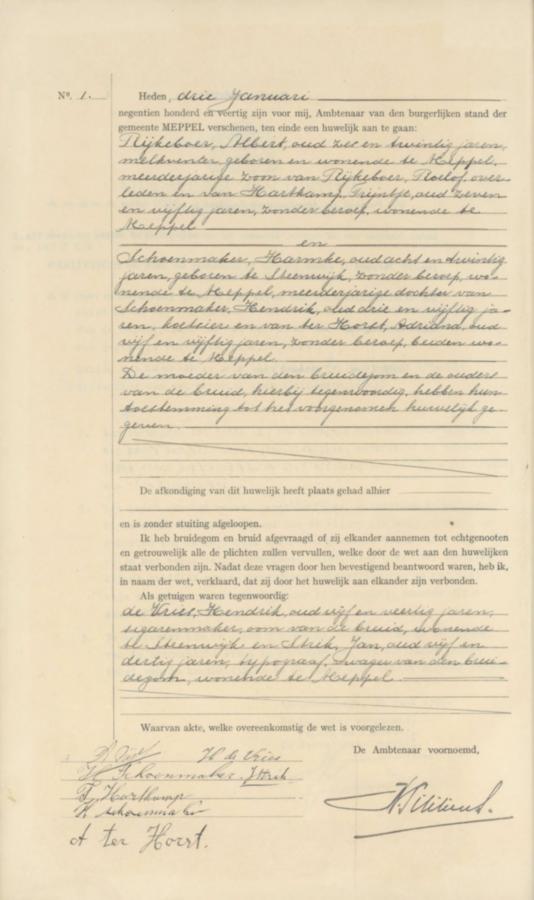 Nº. 1.
Heden, drie Januari
negentien honderd en veertig zijn voor mij, Ambtenaar van den burgerlijken stand der
gemeente MEPPEL verschenen, ten einde een huwelijk aan te gaan:
Rijkeboer, Albert, oud zes en twintig jaren,
melkventer, geboren en wonende te Meppel,
meerderjarige zoon van Rijkeboer, Roelof, over-
leden en van Hartkamp, Trijntje, oud zeven
en vijftig jaren, zonder beroep, wonende te
Meppel
en
Schoenmaker, Harmke, oud acht en twintig
jaren, geboren te Steenwijk, zonder beroep, wo-
nende te Meppel, meerderjarige dochter van
Schoenmaker, Hendrik, oud drie en vijftig ja-
ren, en van ter Horst, Adriana, oud
vijf en vijftig jaren, zonder beroep, beiden wo-
nende te Meppel.
De moeder van den bruidegom en de ouders
van de bruid, hierbij tegenwoordig, hebben hun
toestemming tot het voorgenomen huwelijk ge-
geven.
De afkondiging van dit huwelijk heeft plaats gehad alhier
en is zonder stuiting afgeloopen.
Ik heb bruidegom en bruid afgevraagd of zij elkander aannemen tot echtgenooten
en getrouwelijk alle de plichten zullen vervullen, welke door de wet aan den huwelijken
staat verbonden zijn. Nadat deze vragen door hen bevestigend beantwoord waren, heb ik,
in naam der wet, verklaard, dat zij door het huwelijk aan elkander zijn verbonden.
Als getuigen waren tegenwoordig:
de Vries, Hendrik, oud vijf en veertig jaren,
sigarenmaker, oom van de bruid, wonende
te Steenwijk en Strik, Jan, oud vijf en
dertig jaren, typograaf, zwager van den brui-
degom, wonende te Meppel.
Waarvan akte, welke overeenkomstig de wet is voorgelezen.
De Ambtenaar voornoemd,
H de Vries
H Schoenmaker. J Strik
T. Hartkamp
H Schoenmaker
A ter Horst.